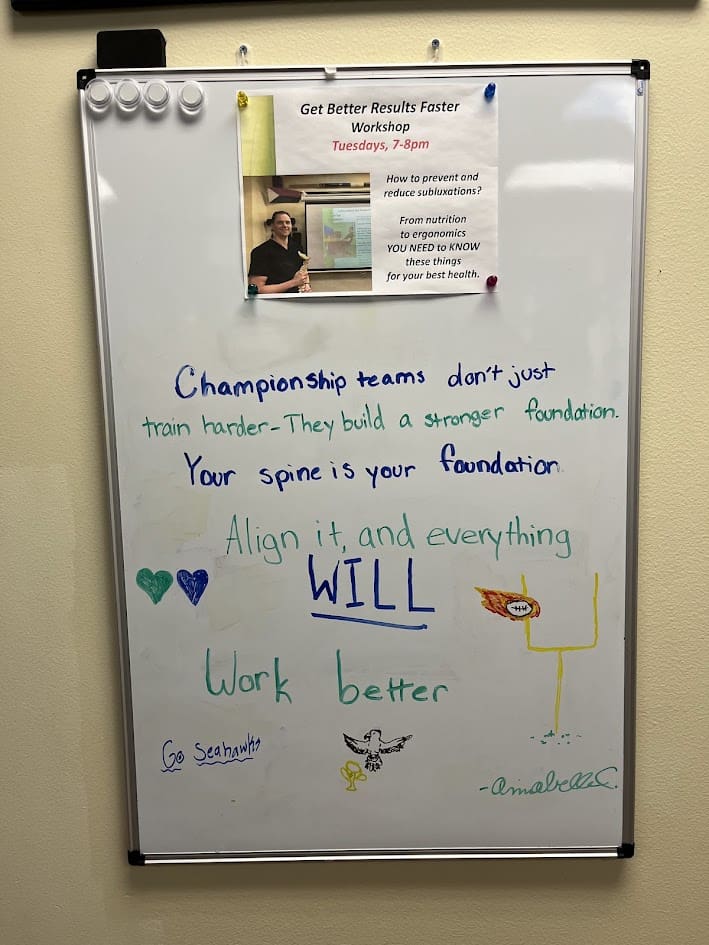 Get Better Results Faster
Workshop
Tuesdays, 7-8pm
How to prevent and
reduce subluxations?
From nutrition
to ergonomics
YOU NEED to KNOW
these things
for your best health.
Championship teams don't just
train harder - They build a stronger foundation.
Your spine is your foundation.
Align it, and everything
WILL
Work better
Go Seahawks
-Annabelle C.